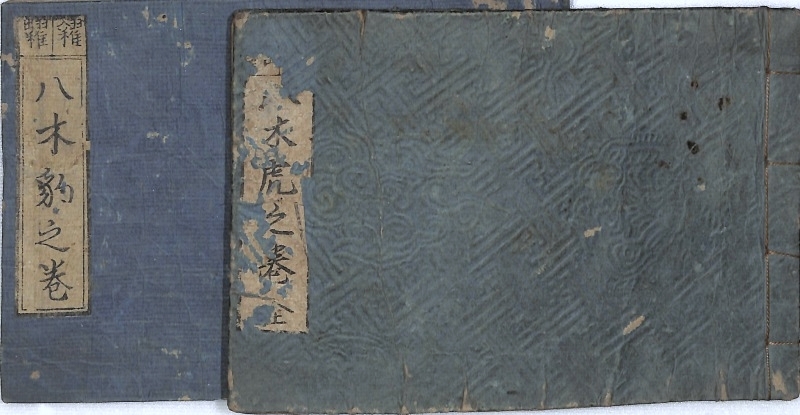 八木豹之巻
木虎之巻
全